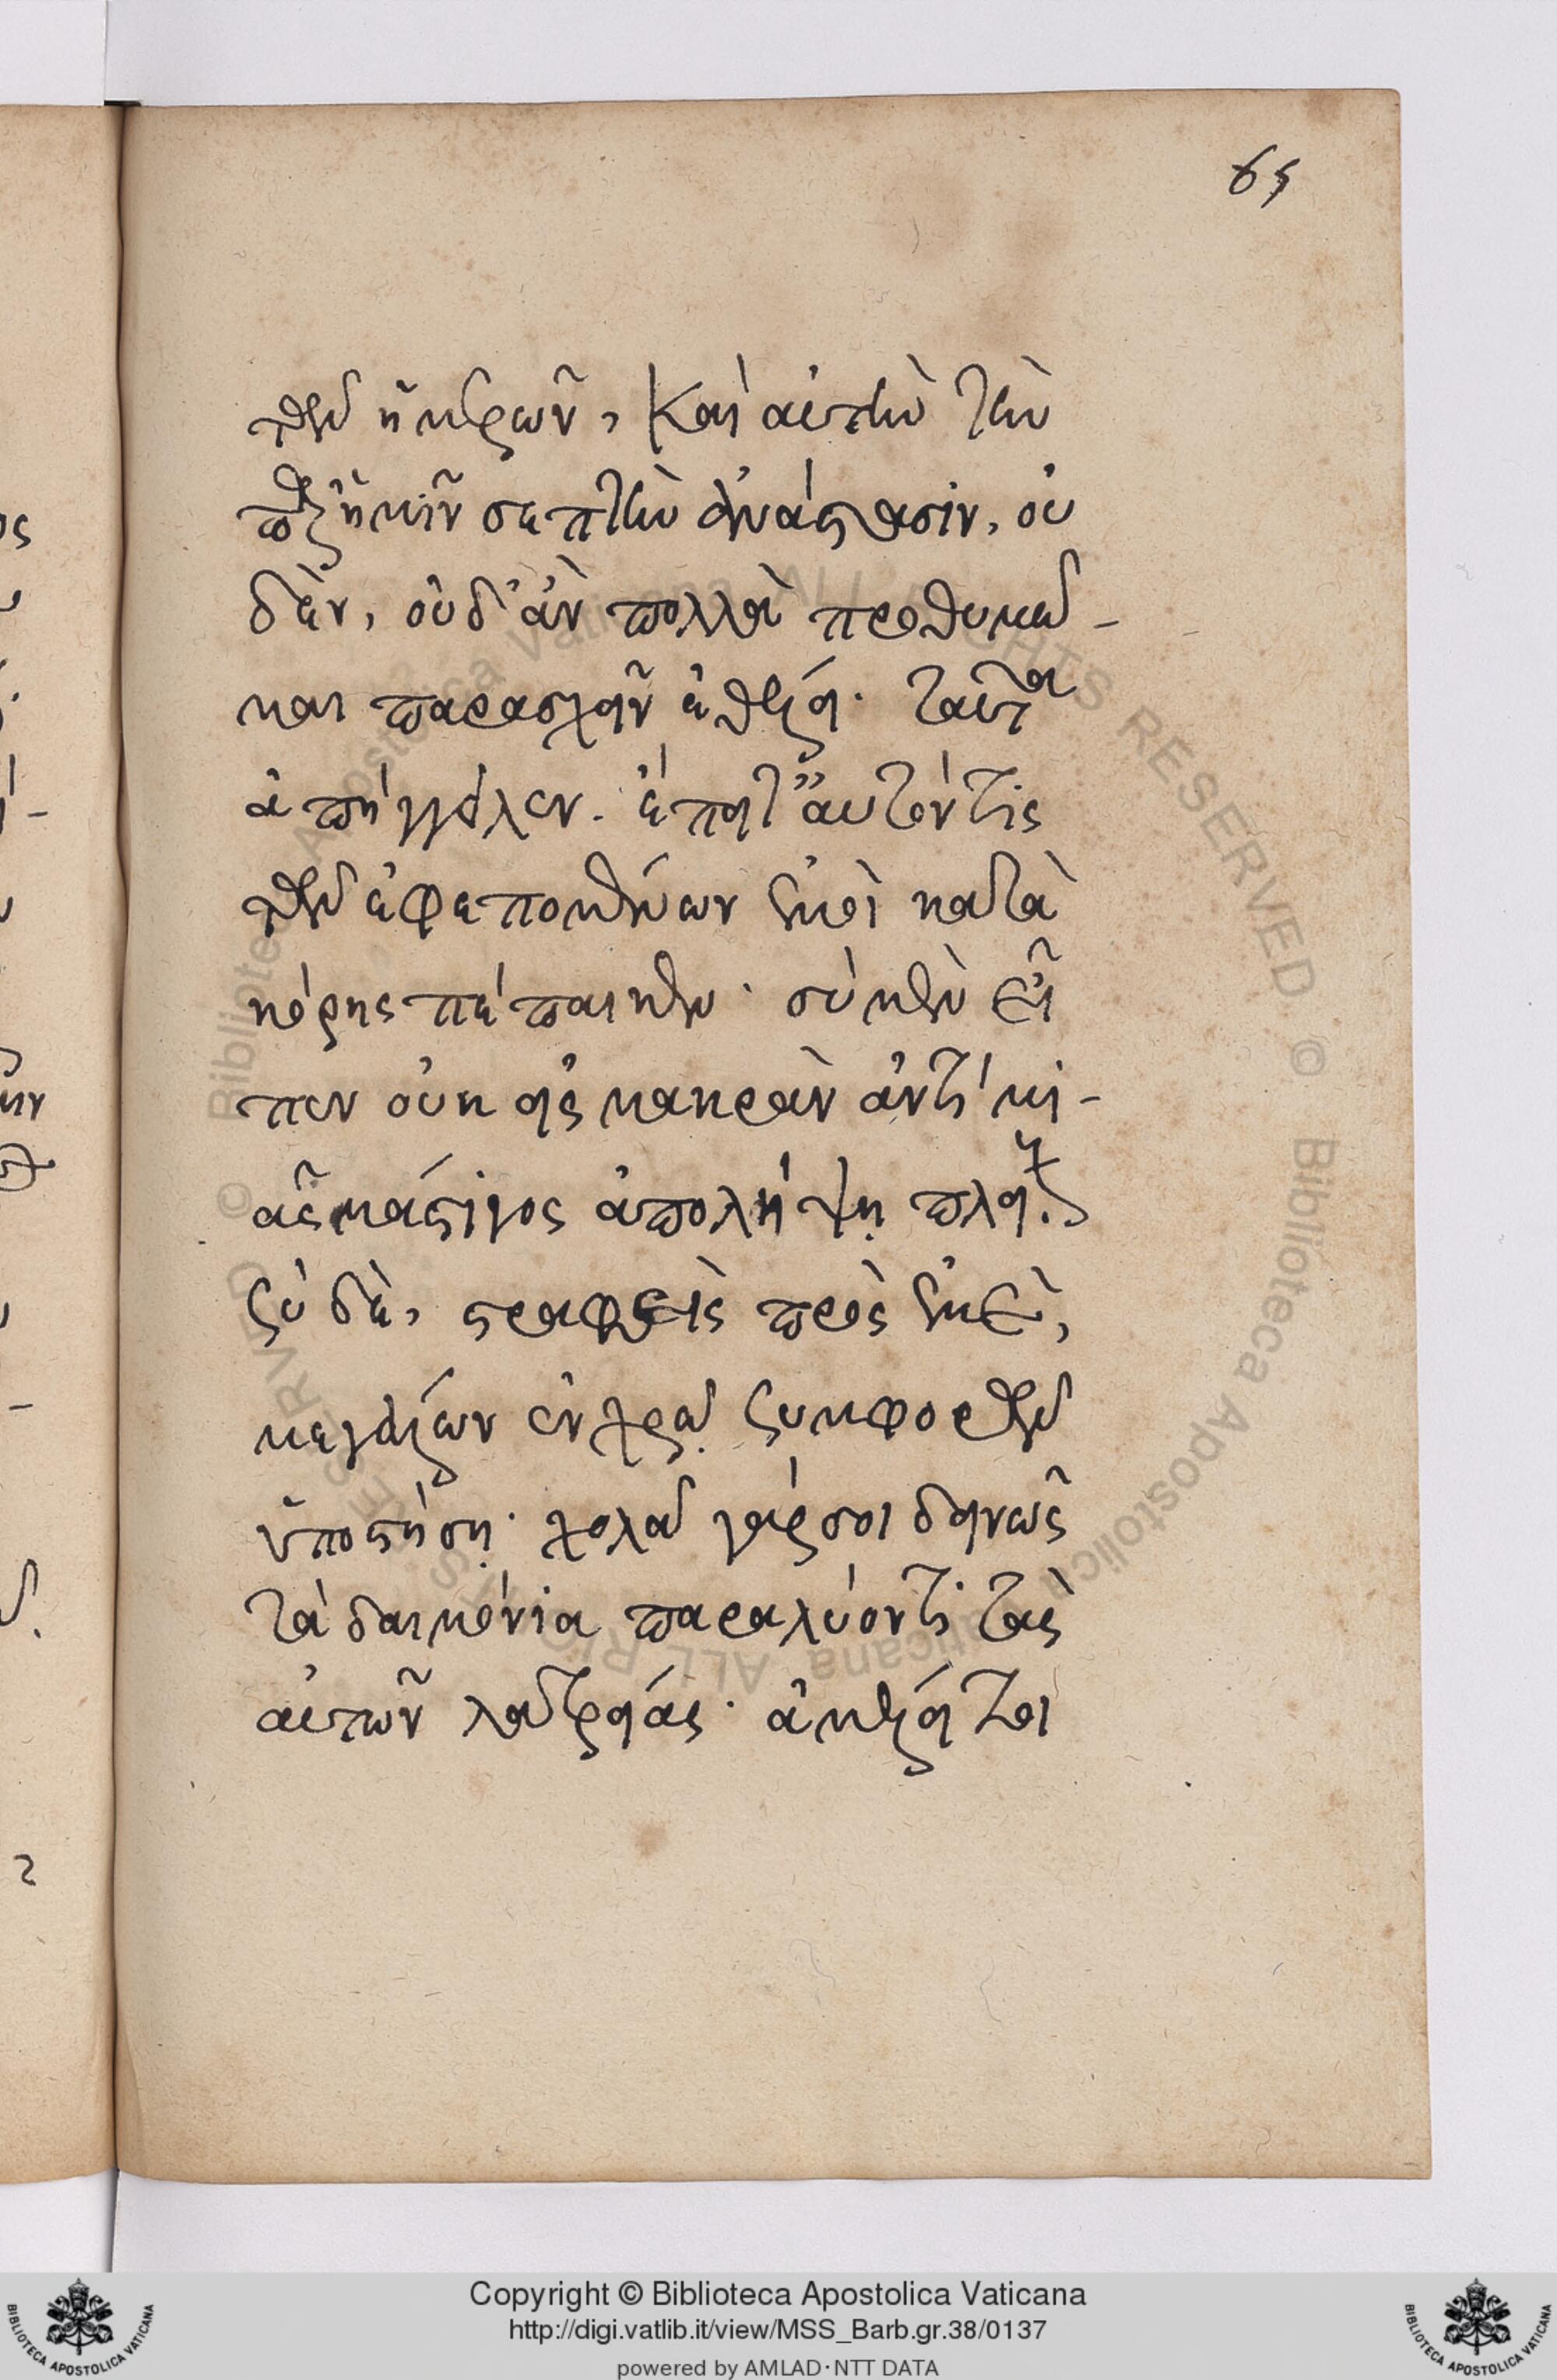 65
τῶν ἡμερῶν, Καὶ αὐτὴν τὴν
παρ' ἡμῖν σεπτὴν ἀνάστασιν, οὐ
δὲν, οὐδ' ἂν πολλὰ προθυμῶ-
μαι παρασχεῖν ἐθέλει. ταῦτα
ἀπήγγελεν. ἔπειτ' αὐτόν τις
τῶν ἐφεπομένων ἐμοὶ κατὰ
κόρης πέπαικεν· σὺ μὲν εἶ
πεν οὐκ εἰς μακρὰν ἀντὶ μι-
ᾶς μάστιγος ἀπολήψῃ πλείους
σὺ δὲ, στραφεὶς πρὸς ἐμὲ,
μεγάλων ἐν χρῷ συμφορῶν
ὑποστήσῃ· χολᾷ γάρ σοι δεινῶς
τὰ δαιμόνια παραλύοντι τὰς
αὐτῶν λατρείας· ἀμέλει τοι
Copyright © Biblioteca Apostolica Vaticana
http://digi.vatlib.it/view/MSS_Barb.gr.38/0137
powered by AMLAD·NTT DATA